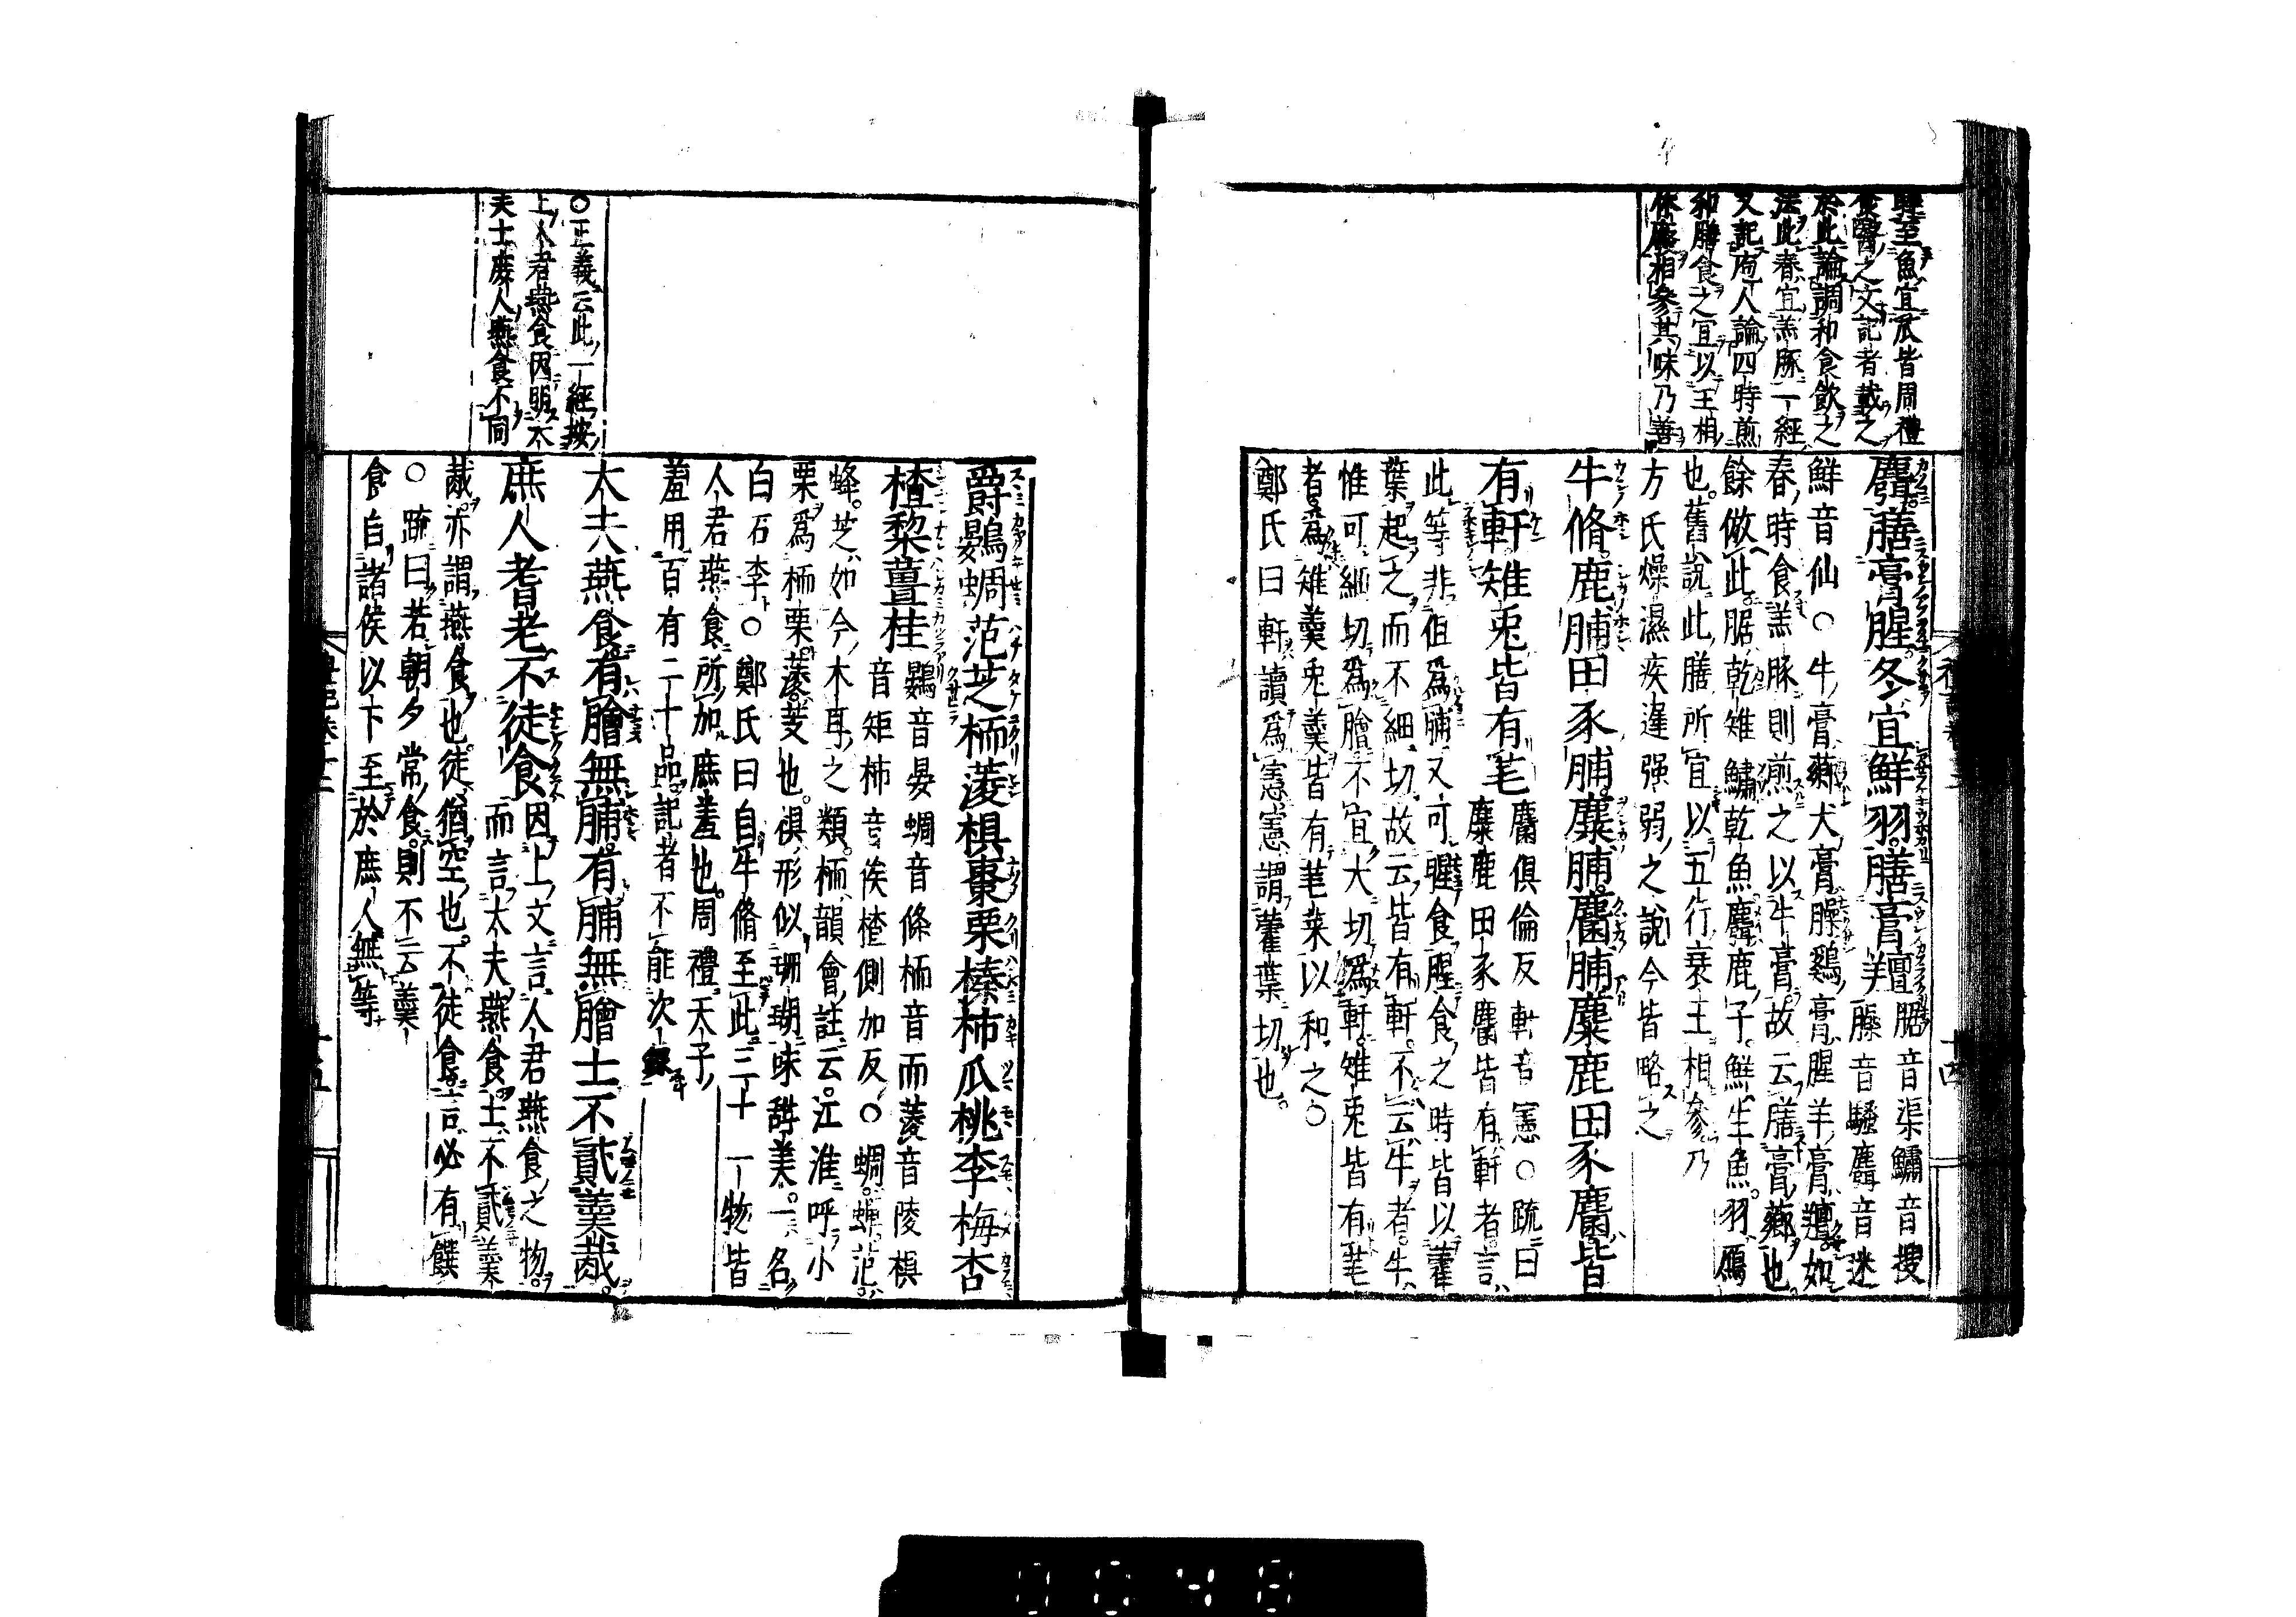 睡至魚宜瓜皆周禮
食醫之文記者載之
於此論調和食飲之
法此春宜羔豚一經
又記庖人論四時煎
和膳食之宜以王相
休廢相參其味乃善
麛膳膏腥冬宜鮮羽膳膏羶腒音渠鱐音搜
羊臊音騷麛音迷
鮮音仙○牛膏薌犬膏臊鷄膏腥羊膏羶如
春時食羔豚則煎之以牛膏故云膳膏薌也
餘倣此腒乾雉鱐乾魚麛鹿子鮮生魚羽鴈
也舊說此膳所宜以五行衰王相參乃
方氏燥濕疾遲强弱之說今皆略之
牛脩鹿脯田豕脯麋脯麕脯麋鹿田豕麕皆
有軒雉兎皆有芼麕俱倫反軒音憲○疏曰
麋鹿田豕麕皆有軒者言
此等非但爲脯又可腥食腥食之時皆以藿
葉起之而不細切故云皆有軒不云牛者牛
惟可細切爲膾不宜大切爲軒雉兎皆有芼
者爲雉羹兎羹皆有芼菜以和之○
鄭氏曰軒讀爲憲憲謂藿葉切也
禮記卷十二
十四
爵鷃蜩范芝栭蔆椇棗栗榛柿瓜桃李梅杏
楂棃薑桂鷃音晏蜩音條栭音而蔆音陵椇
音矩柿音俟楂側加反○蜩蟬范
蜂芝如今木耳之類栭韻會註云江淮呼小
栗爲栭栗蔆芰也椇形似珊瑚味甜美一名
白石李○鄭氏曰自牛脩至此三十一物皆
人君燕食所加庶羞也周禮天子
羞用百有二十品記者不能次錄
○正義云此一經按
上人君燕食因明大
夫士庶人燕食不同
大夫燕食有膾無脯有脯無膾士不貳羹胾
庶人耆老不徒食因上文言人君燕食之物
而言大夫燕食士不貳羹
胾亦謂燕食也徒猶空也不徒食言必有饌
○疏曰若朝夕常食則下云羹
食自諸侯以下至於庶人無等
禮記卷十二
十五